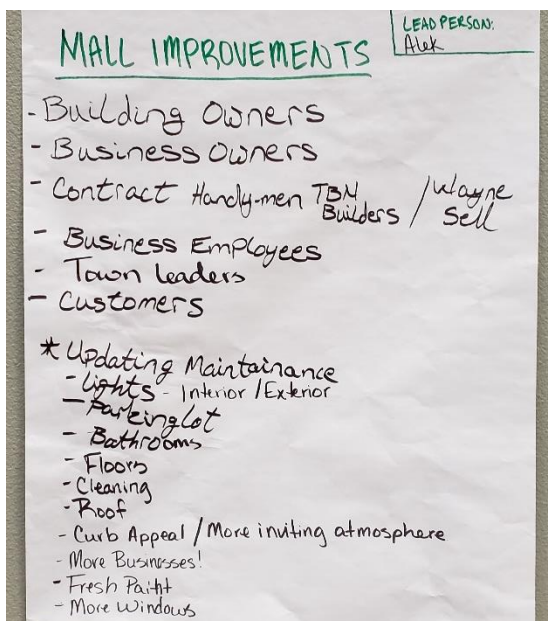 MALL IMPROVEMENTS
LEAD PERSON:
Alek
- Building Owners
- Business Owners
- Contract Handy-men TBN Builders / Wayne Sell
- Business Employees
- Town leaders
- Customers
* Updating Maintainance
- Lights - Interior / Exterior
- Parking Lot
- Bathrooms
- Floors
- Cleaning
- Roof
- Curb Appeal / More inviting atmosphere
- More Businesses!
- Fresh Paint
- More Windows